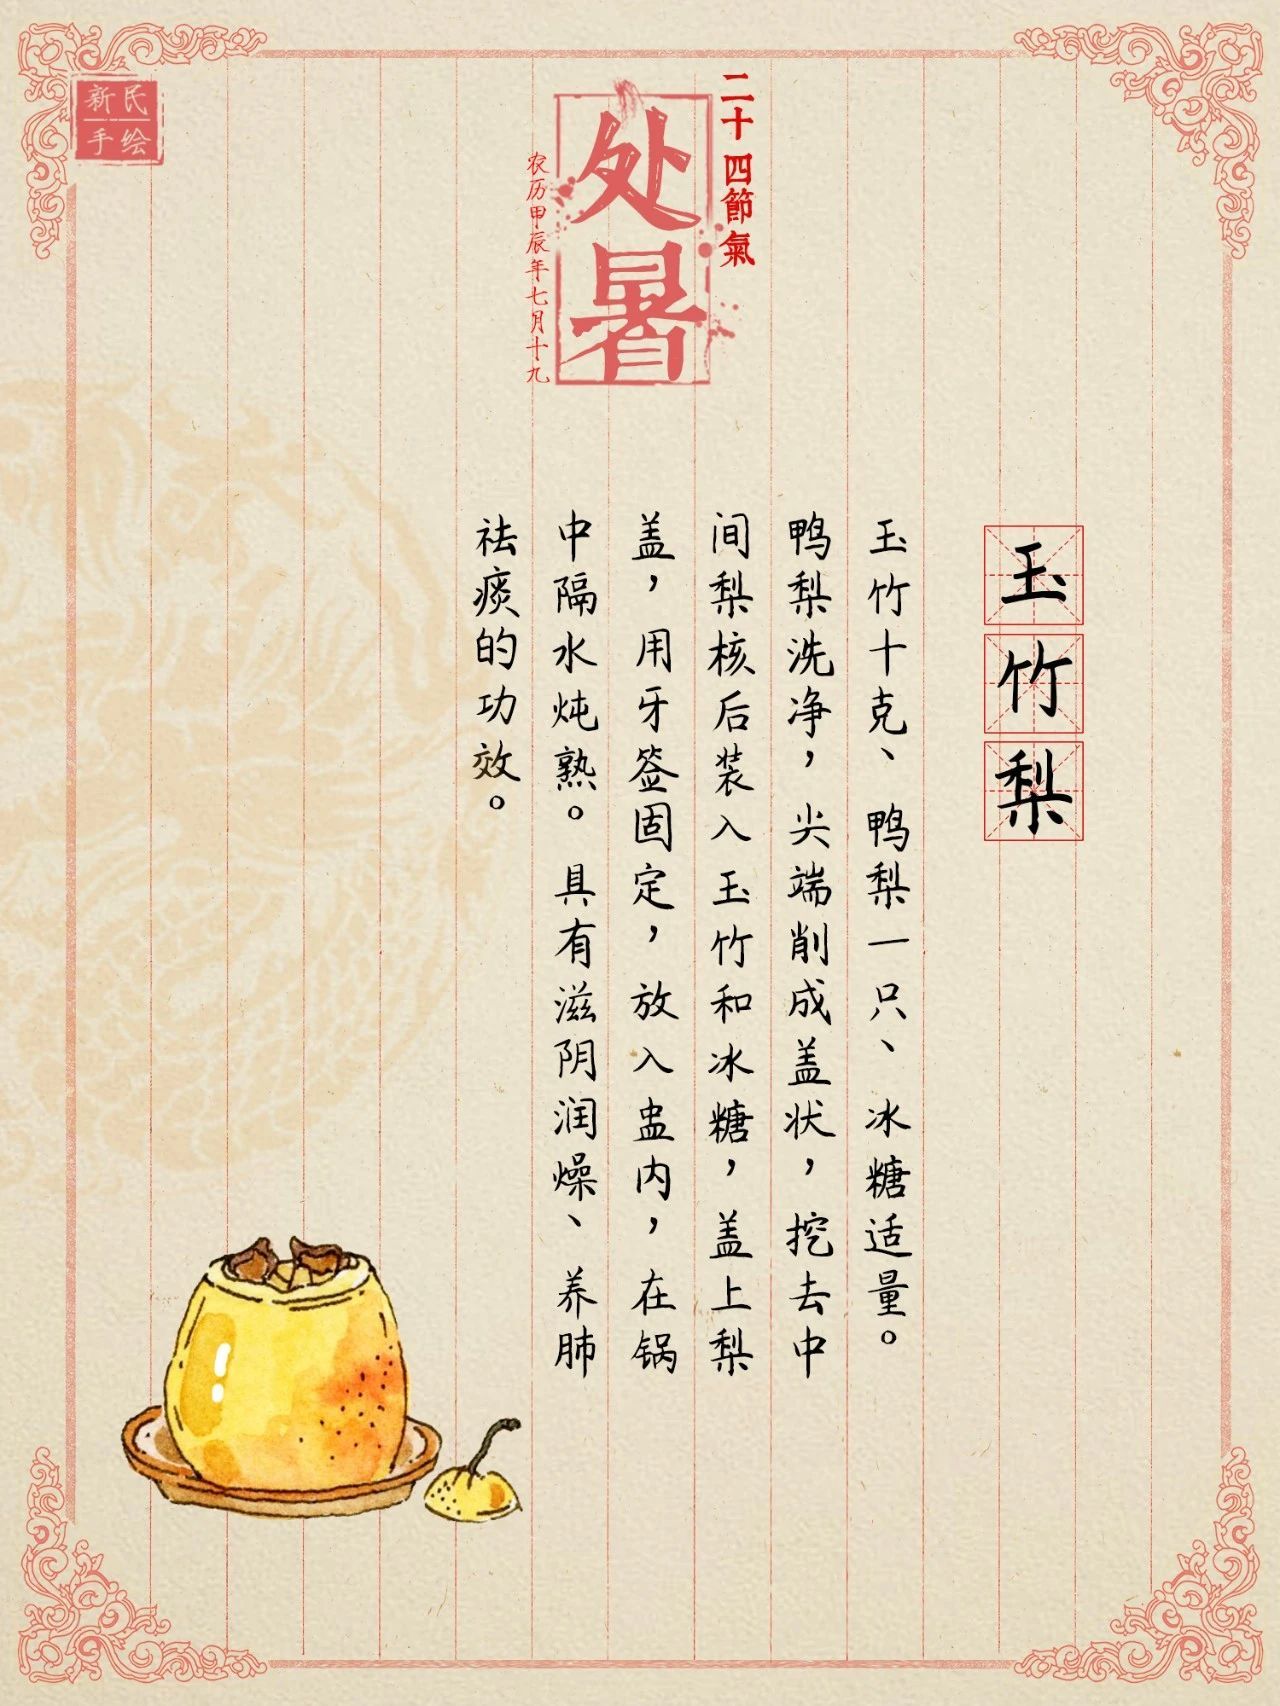 新民
手绘
二十四節氣
处暑
农历甲辰年七月十九
玉竹梨
玉竹十克、鸭梨一只、冰糖适量。
鸭梨洗净，尖端削成盖状，挖去中
间梨核后装入玉竹和冰糖，盖上梨
盖，用牙签固定，放入盅内，在锅
中隔水炖熟。具有滋阴润燥、养肺
祛痰的功效。